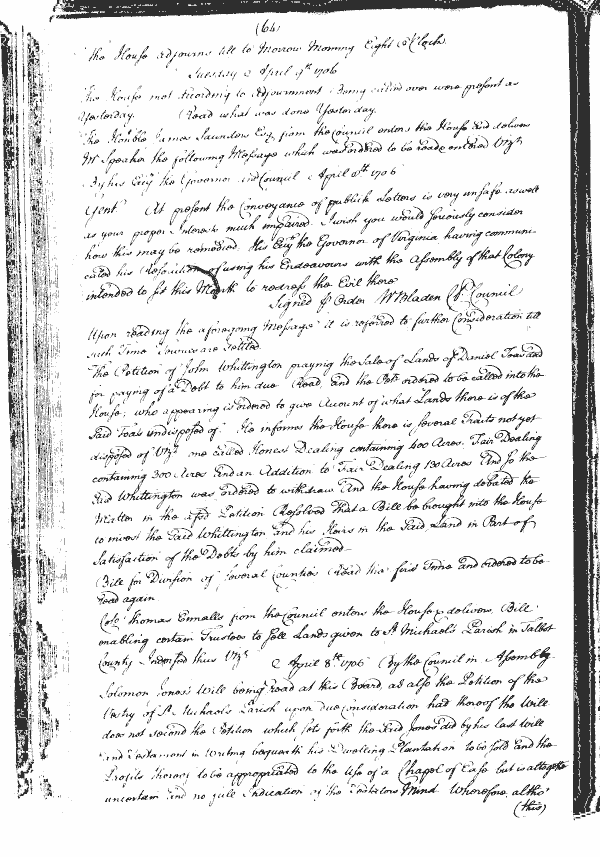 (64)
The House adjourns till to Morrow Morning Eight o Clock
Tuesday April 9th 1706
The House met According to Adjournment Being called over were present as
Yesterday. Read what was done Yesterday.
The Honble James Saunders Esq. from the Council enters the House and delivers
Mr Speaker the following Message which was ordered to be read & entered Vizt
By his Excy the Governor and Council April 8th 1706
Gent At present the Conveyance of publick Letters is very unsafe as well
as your proper Interests much impaired. I wish you would seriously consider
how this may be remedied. His Excy the Governor of Virginia having communi-
cated his Resolution of using his Endeavours with the Assembly of that Colony
intended to sit this Month to redress the Evil there
Signed p Order W Bladen Cl. Council
Upon reading the aforegoing Message it is referred to further Consideration till
such Time are settled
The Petition of John Whittington praying the Sale of Lands of Daniel Toas and
for paying of a Debt to him due Read, and the Petr ordered to be called into the
House; who appearing is ordered to give Account of what Lands there is of the
said Toas undisposed of. He informs the House there is several Tracts not yet
disposed of Vizt one called Honest Dealing containing 400 Acres. Fair Dealing
containing 300 Acres and an Addition to Fair Dealing 130 Acres And so the
said Whittington was ordered to withdraw And the House having debated the
Matter in the afsd Petition Resolved That a Bill be brought into the House
to invest the said Whittington and his Heirs in the said Land in Part of
Satisfaction of the Debts by him claimed
Bill for Division of several Counties Read the first Time and ordered to be
read again
Colo Thomas Ennalls from the Council enters the House & delivers Bill
enabling certain Trustees to sell Lands given to St Michael's Parish in Talbot
County Indorsed thus Vizt April 8th 1706 By the Council in Assembly
Solomon Jones's Will being read at this Board, as also the Petition of the
Vestry of St Michaels Parish upon due Consideration had thereof the Will
does not second the Petition which sets forth the said Jones did by his last Will
and Testament in Writing bequeath his Dwelling Plantation to be sold and the
Profits thereof to be appropriated to the Use of a Chapel of Ease but is altogether
uncertain and no full Indication of the Testators Mind Wherefore, altho'
(this)